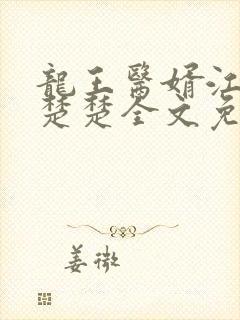 龍王醫婿江
楚楚全文免
姜微